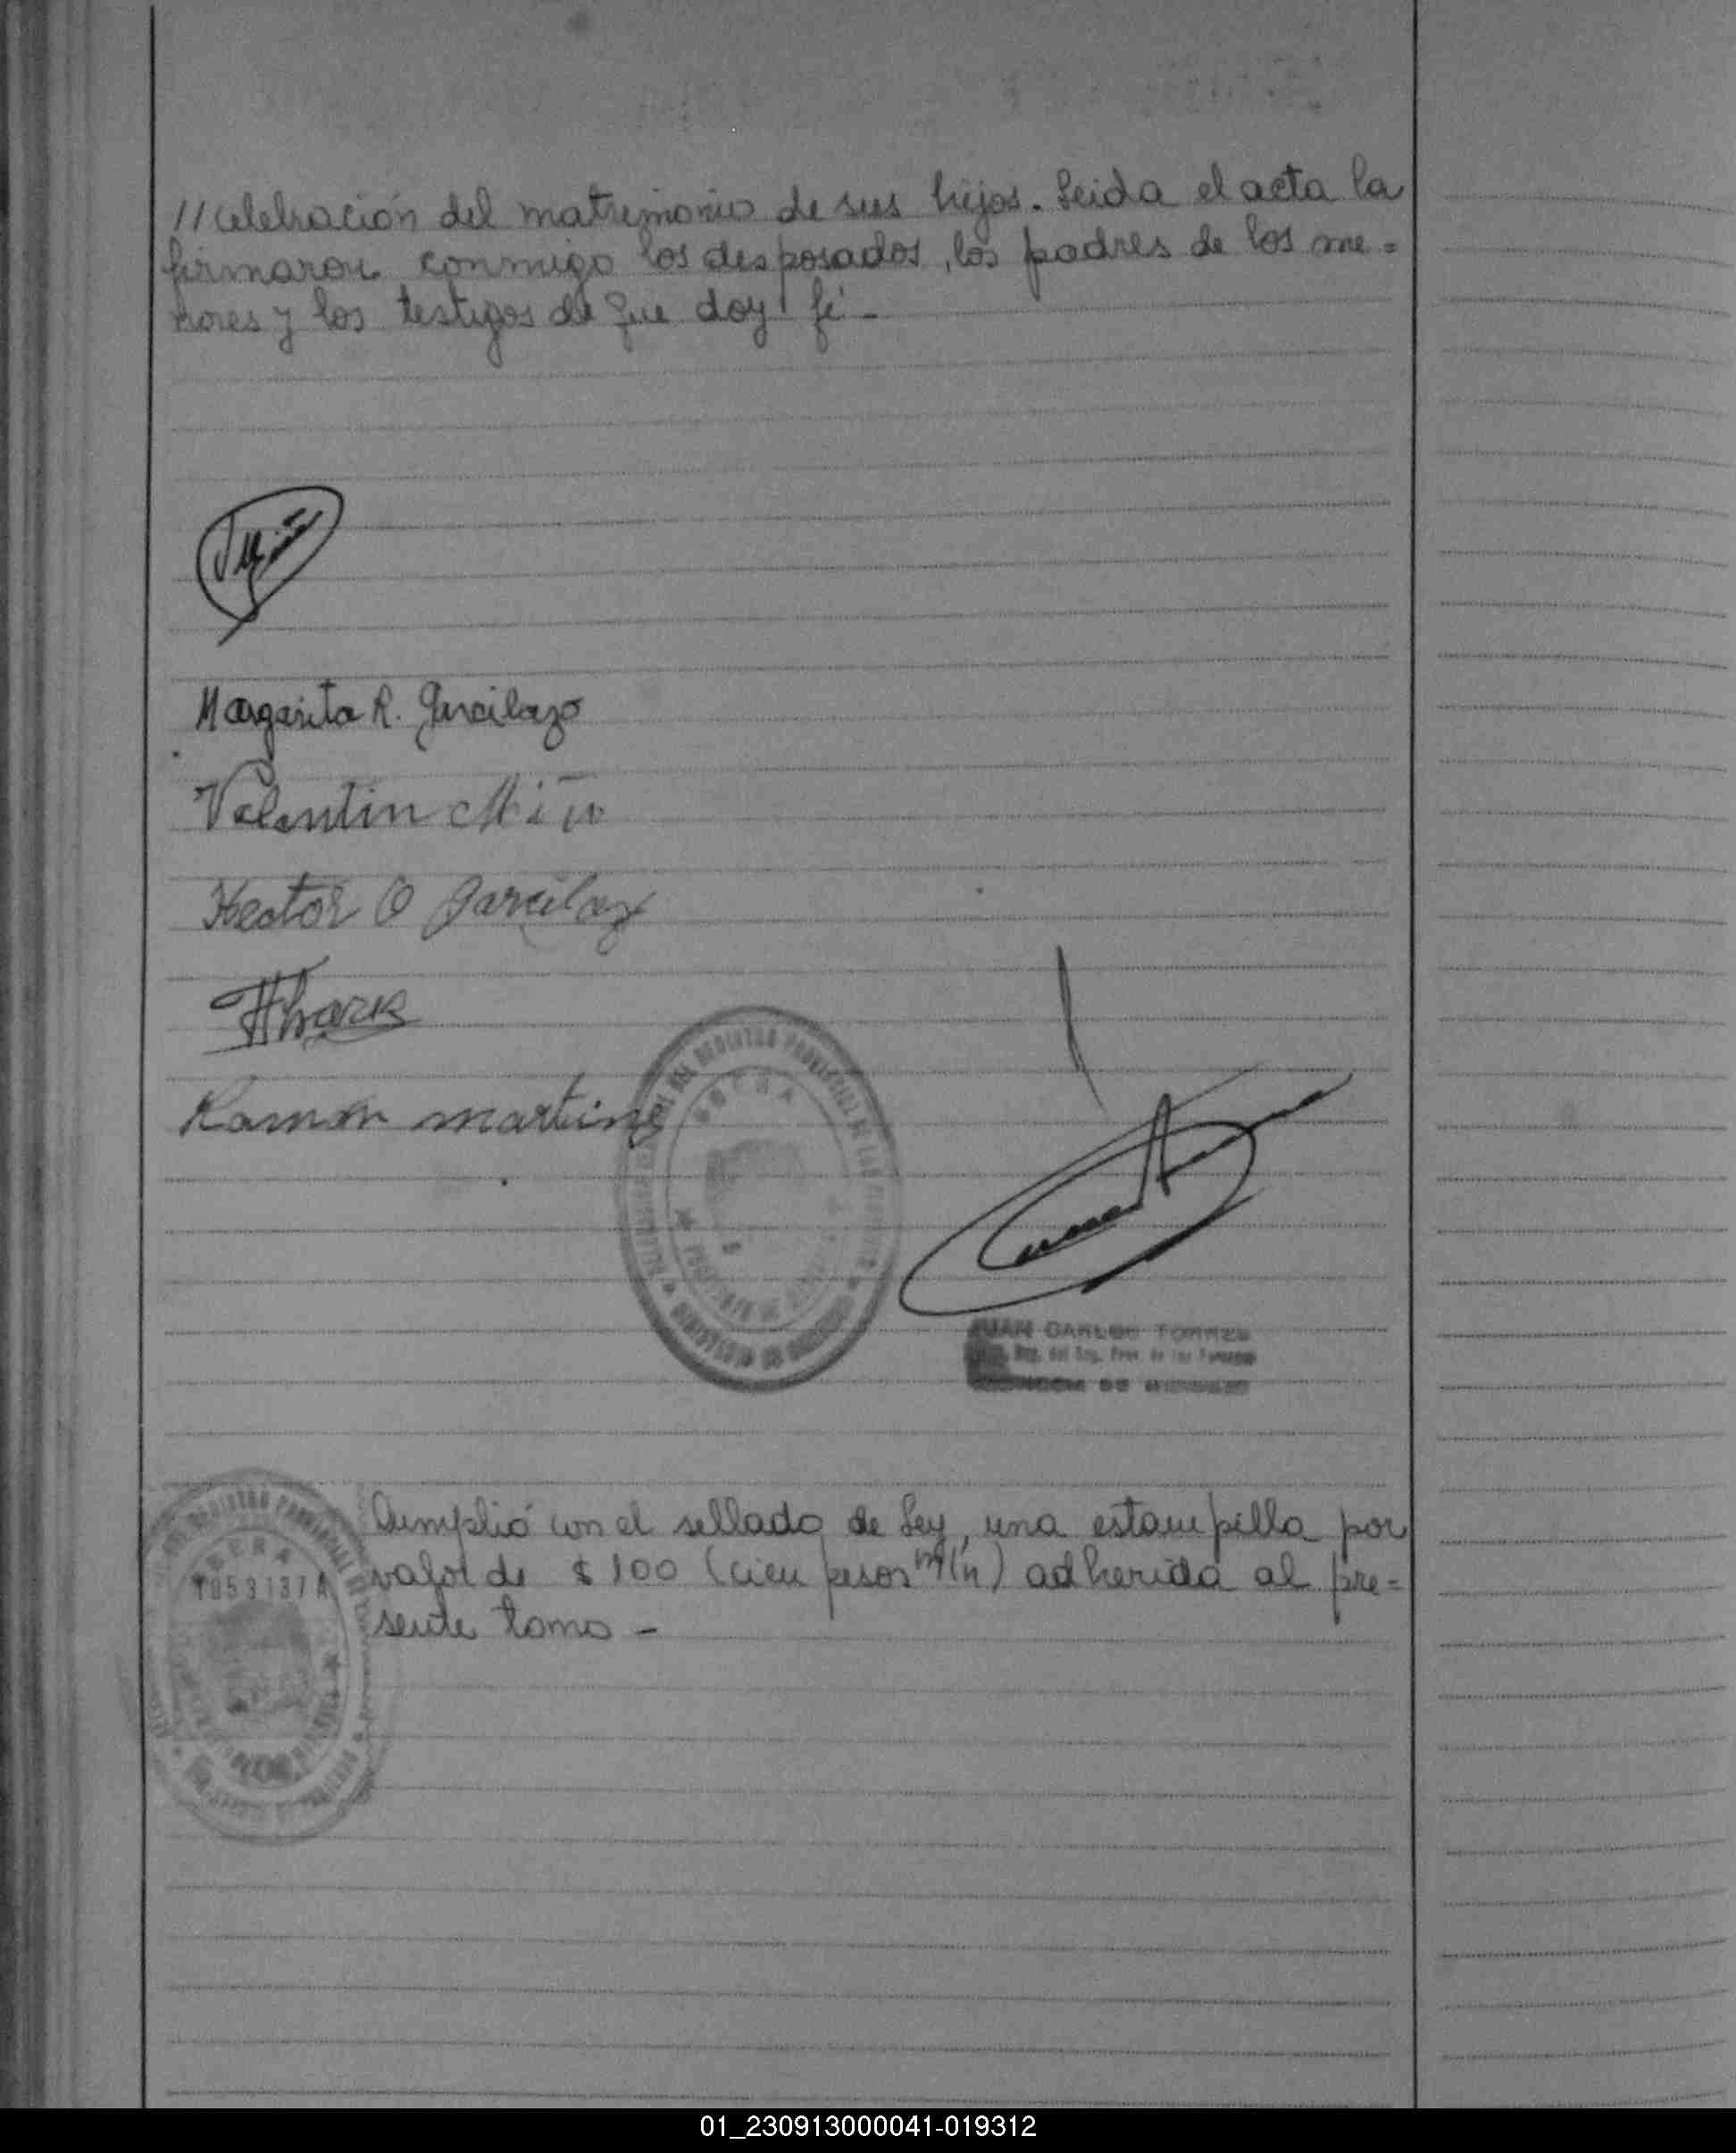 //celebración del matrimonio de sus hijos. Leida el acta la
firmaron conmigo los desposados, los padres de los me=
nores y los testigos de que doy fé -
Margarita R. Garcilazo
Valentin Miño
Hector O Garcilazo
Ramon martinez
OBERA
JUAN CARLOS TORRES
Cumplió con el sellado de Ley, una estampilla por
valor de $ 100 (cien pesos m/n) adherida al pre=
sente tomo -
OBERA
1053137A
01_230913000041-019312